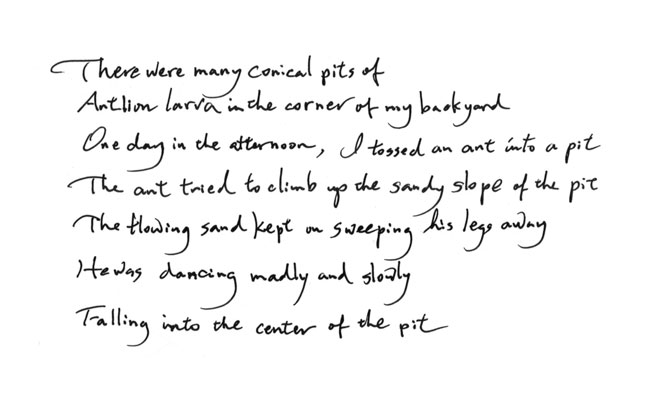 There were many conical pits of
Antlion larva in the corner of my backyard
One day in the afternoon, I tossed an ant into a pit
The ant tried to climb up the sandy slope of the pit
The flowing sand kept on sweeping his legs away
He was dancing madly and slowly
Falling into the center of the pit